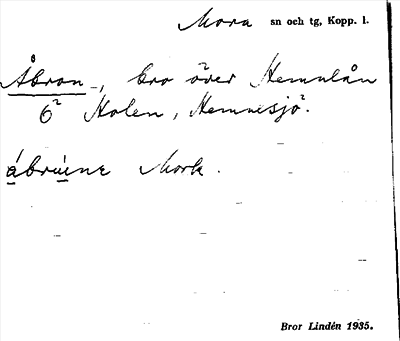 Mora sn och tg, Kopp. l.
Åbron, bro över Hemulån
6² Holen, Hemnesjö².
ábruine Mork.
Bror Lindén 1935.